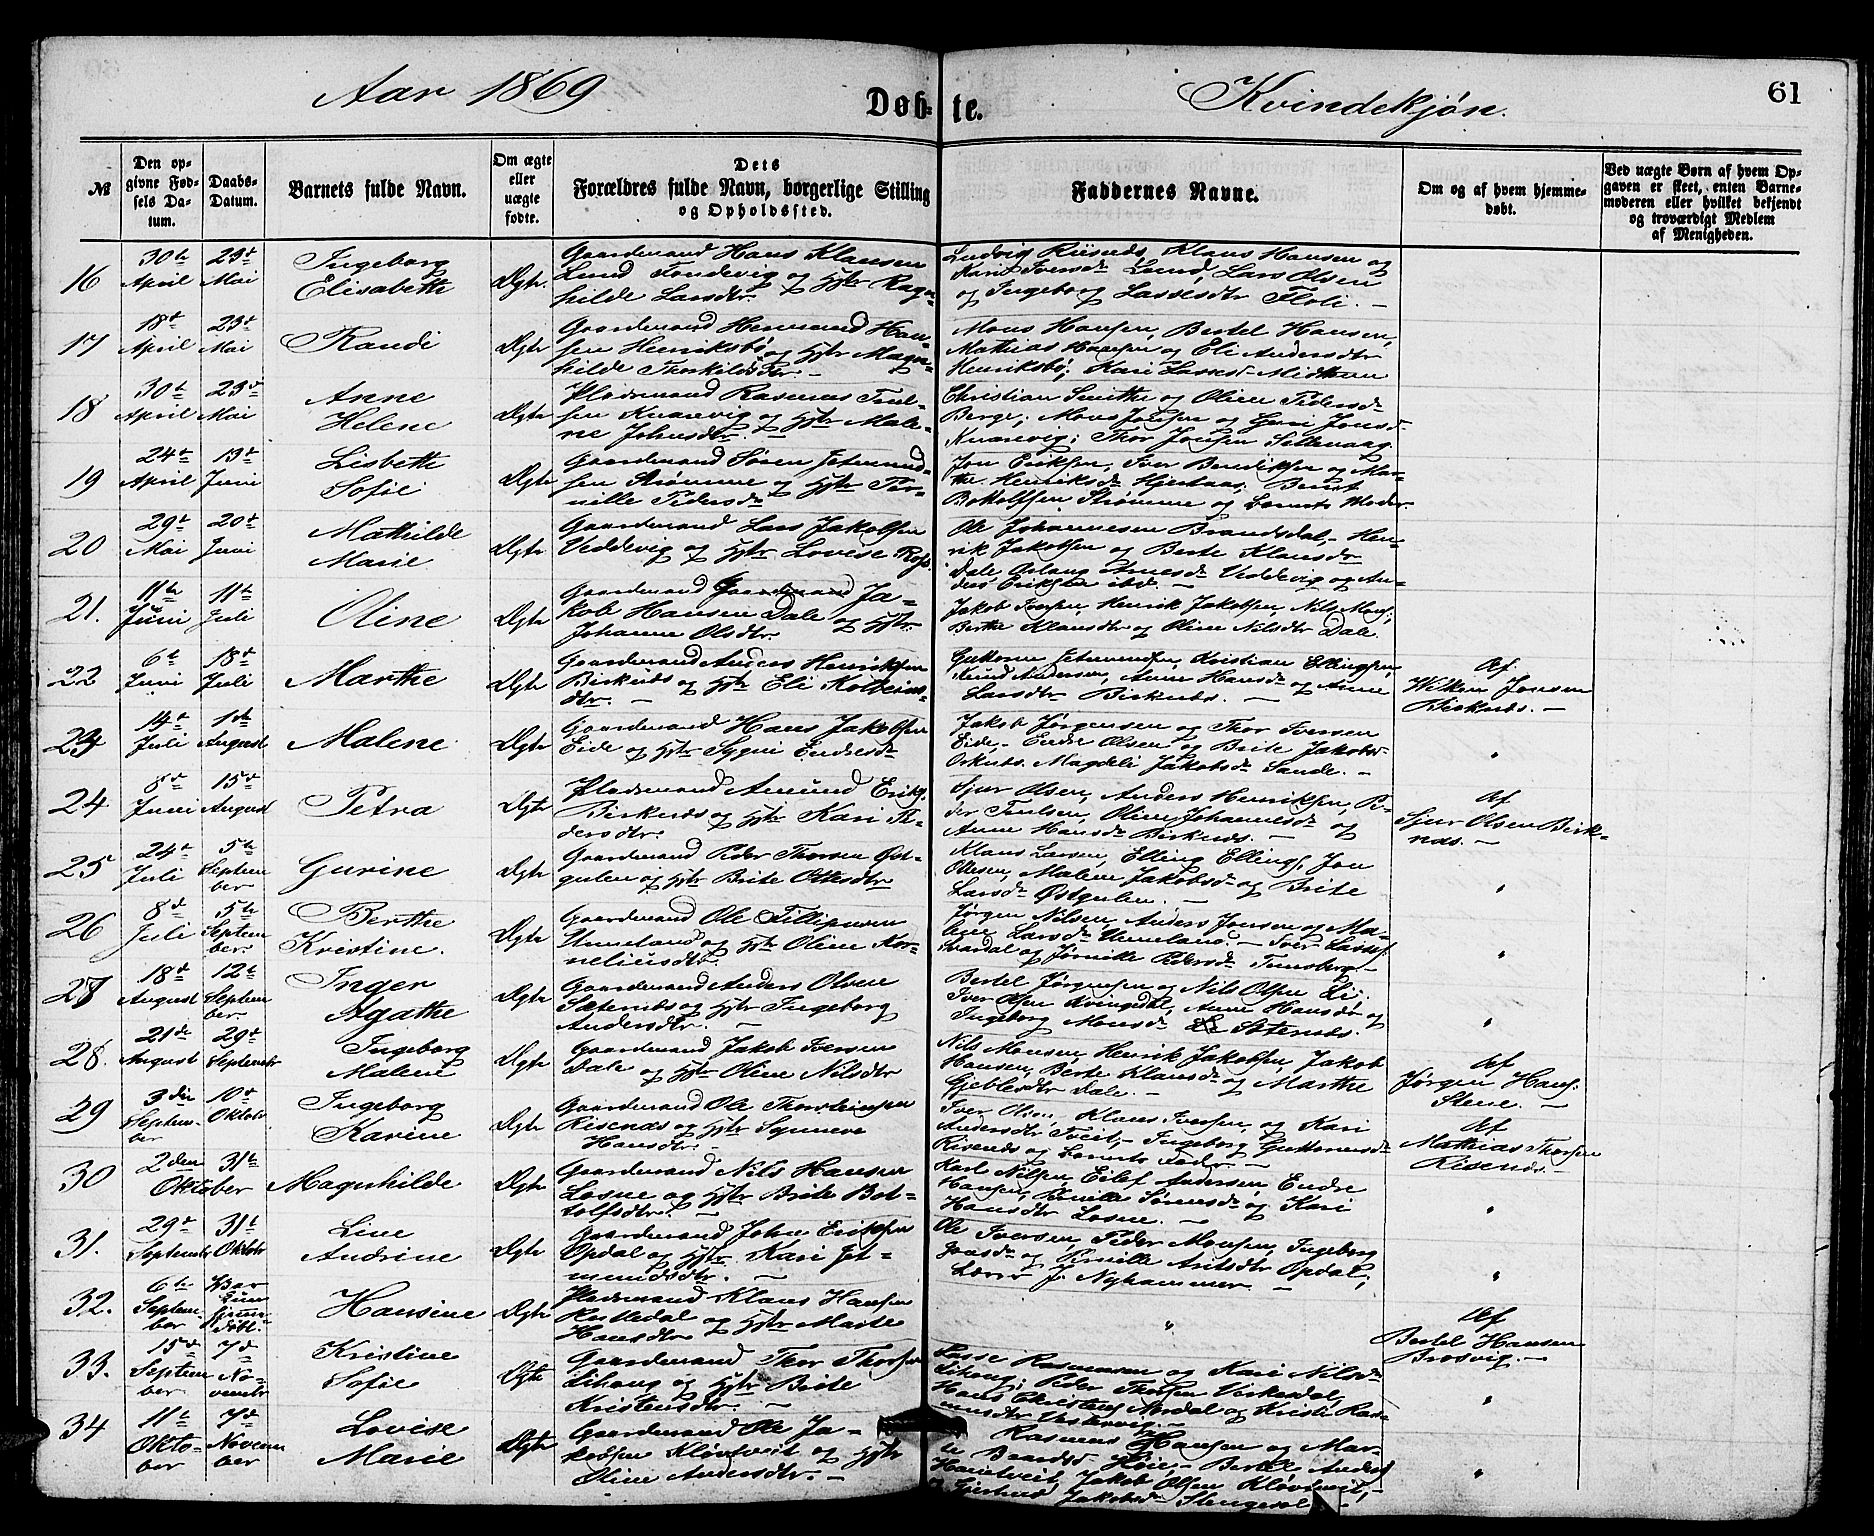 Aar 1869
Døb-
te.
Kvindekjøn.
61
№
Den op-
givne Fød-
sels Da-
tum.
Daabs-
Datum.
Barnets fulde Navn.
Om ægte
eller
uægte
fødte.
Dets
Forældres fulde Navn, borgerlige Stilling
og Opholdssted.
Faddernes Navne.
Om og af hvem hjemme-
døbt.
Ved uægte Børn af hvem Op-
gaven er skeet, enten Barne-
moderen eller hvilket bekjendt
og troværdigt Medlem
af Menigheden.
16
30te April
23d Mai
Ingeborg
Elisabeth
Ægte.
Gaardmand Hans Klausen
Lund Fondevig og Hstr Ragn-
hilde Larsdtr.
Ludvig Riisnes, Klaus Hansen og
Kari Iversdr Lund, Lars Olsen
og Ingeborg Lassesdtr Floli. –
17
18de April
23d Mai
Randi
Ægte
Gaardmand Hermund Han-
sen Henriksbø og Hstr Magn-
hilde Thorkildsdtr. –
Mons Hansen, Bertel Hansen,
Mathias Hansen og Eli Andersdtr
Henriksbø, Kari Lassesd Midttun
18
30te April
23d Mai
Anne
Helene
Ægte
Pladsmand Rasmus Teol-
sen Kvarevig og Hstr Male-
ne Johnsdtr. –
Christian Smithe og Oline Pedersd
Berge; Mons Jonsen og Guri Jonsd
Kvarevig; Thor Jonsen Sellevaag
19
24de April
13de Juni
Lisbeth
Sofie
Ægte
Gaardmand Søren Jetmund-
sen Strømme og Hstr Per-
nille Pedersd
Jon Eriksen, Iver Bendiksen og Mar-
the Henriksdr Hjertaas; Bernt
Botolfsen Strømme og Barnets Moder.
20
29de Mai
20de Juni
Mathilde
Marie
Ægte
Gaardmand Lars Jakobsen
Veddevig og Hstr Lovise Rasd
Ole Johannesen Brandsdal, Hen-
rik Jakobsen og Berte Klausdr
Dale Aslaug Arnesd Veddevig og An-
ders Eriksen ibd. –
21.
11te Juni
11te Juli
Oline
Ægte
Gaardmand Gaardmand Ja-
kob Hansen Dale og Hstr.
Johanne Olsdtr.
Jakob Iversen, Henrik Jakobsen, Nils Mons;
Berthe Klausdtr og Oline Nilsdtr Dale.
22
6te Juni
18de Juli
Marthe
Ægte
Gaardmand Anders Henriksen
Birknes og Hstr Eli Kolbeins-
dtr. –
Guttorm Jetmundsen, Kristian Ellingsen,
Knud Andersen, Anne Hansdr og Anne
Larsdtr Birknes. –
Af
Wilken Jonsen
Birknes. –
23
14de Juli
1ste August
Malene
Ægte
Gaardmand Hans Jakobsen
Eide og Hstr Sygni Endresdr
Jakob Jørgensen og Thor Iversen
Eide, Endre Olsen og Brite Jakobsd
Osknes. Magdeli Jakobsdr Sande. –
"
24
8de Juni
15de August
Petra
Ægte
Pladsmand Amund Eriks.
Birknes og Hstr Kari Pe-
dersdtr.
Sjur Olsen, Anders Henriksen, Pe-
der Teolsen, Oline Johannesdr og
Anne Hansdr Birknes. –
Af
Sjur Olsen Birk-
nes. –
25
24de Juli
5te Septem
ber
Gurine
Ægte
Gaardmand Peder Thorsen Øst-
gulen og Hstr Brite Ottesdtr
Klaus Larsen, Elling Ellings, Jon
Ottesen, Malene Jakobsdr og Brite
Larsdr Østgulen. –
"
26
8de Juli
5te Septem
ber.
Berthe
Kristine.
Ægte
Gaardmand Ole Fillipusen
Unneland og Hstr Oline Kor-
neliusdtr.
Jørgen Nilsen, Anders Iversen og Ma-
lene Larsdr Unneland. – Iver Lasses.
Svardal og Jørnitte Pedersdr Tunsberg –
"
27
18de August
12te Septem
ber.
Inger
Agathe
Ægte
Gaardmand Anders Olsen
Sæternes og Hstr Ingeborg
Andersdtr. –
Bertel Jørgensen og Nils Olsen Li,
Iver Olsen Kvingedal, Anne Hansdr og
Ingeborg Monsdr Sæternes.
"
28.
21de August
29de Septembr
Ingeborg
Malene
Ægte
Gaardmand Jakob Iversen
Dale og Hstr Oline Nilsdtr
Nils Monsen, Henrik Jakobsen, Jakob
Hansen, Berte Klausdr og Marthe
Gjeblesdtr Dale. –
Af
Jørgen Hans.
Stene. –
29
3die Septem-
ber
10de Oktobr
Ingeborg
Karine
Ægte
Gaardmand Ole Thorsteinsen
Risenæs og Hstr Synneve
Hansdtr.
Iver Olsen, Klaus Iversen, og Kari
Andersdtr Tveit, Ingeborg Guttormsdr
Risenes og Barnets Fader. –
Af
Mathias Thorsen
Risenes. –
30
2den
31te
Oktober
Magnhilde
Ægte
Gaardmand Nils Hansen
Losne og Hstr Brite Bot-
tolfsdtr. –
Karl Nilsen, Eilef Andersen, Endre
Hansen, Pernille Sørensdr og Kari
Hansdtr Losne. –
"
31.
29de Septembr
31te Oktobr
Line
Andrine
Ægte
Gaardmand John Eriksen
Opdal og Hstr. Kari Jet-
mundsdtr. –
Ole Iversen, Peder Monsen, Ingeborg
Jonsdr og Pernille Antsdtr Opdal,
Lærer J. Nyhammer –
"
32.
6te Septem-
ber
Bar
kun
hjemme
døbt.
Hansine
Ægte
Pladsmand Klaus Hansen
Rutledal og Hstr Marte
Hansdtr
"
Af
Bertel Hansen
Brosvig. –
33.
15de Septem
ber
7de No-
vembr
Kristine
Sofie
Ægte
Gaardmand Thor Thorsen
Lihaug og Hstr Brite
Kristensdtr. –
Lasse Rasmussen og Kari Nilsdr
Lihaug; Peder Thorsen Virkesdal,
Hans Christens Nordal og Kristi Ras-
musdtr Vestrevig. –
"
34
11te Okto-
ber
7de Novem
ber
Lovise
Marie
Ægte
Gaardmand Ole Ja-
kobsen Kløvtveit og Hstr
Oline Andersdtr. –
Rasmus Hansen og Mar-
te Baardsd Høie, – Bertel Anders
Haveltveit, Jakob Olsen Kløvtveit,
og Gjertrud Jakobsdr Stengesol –
"